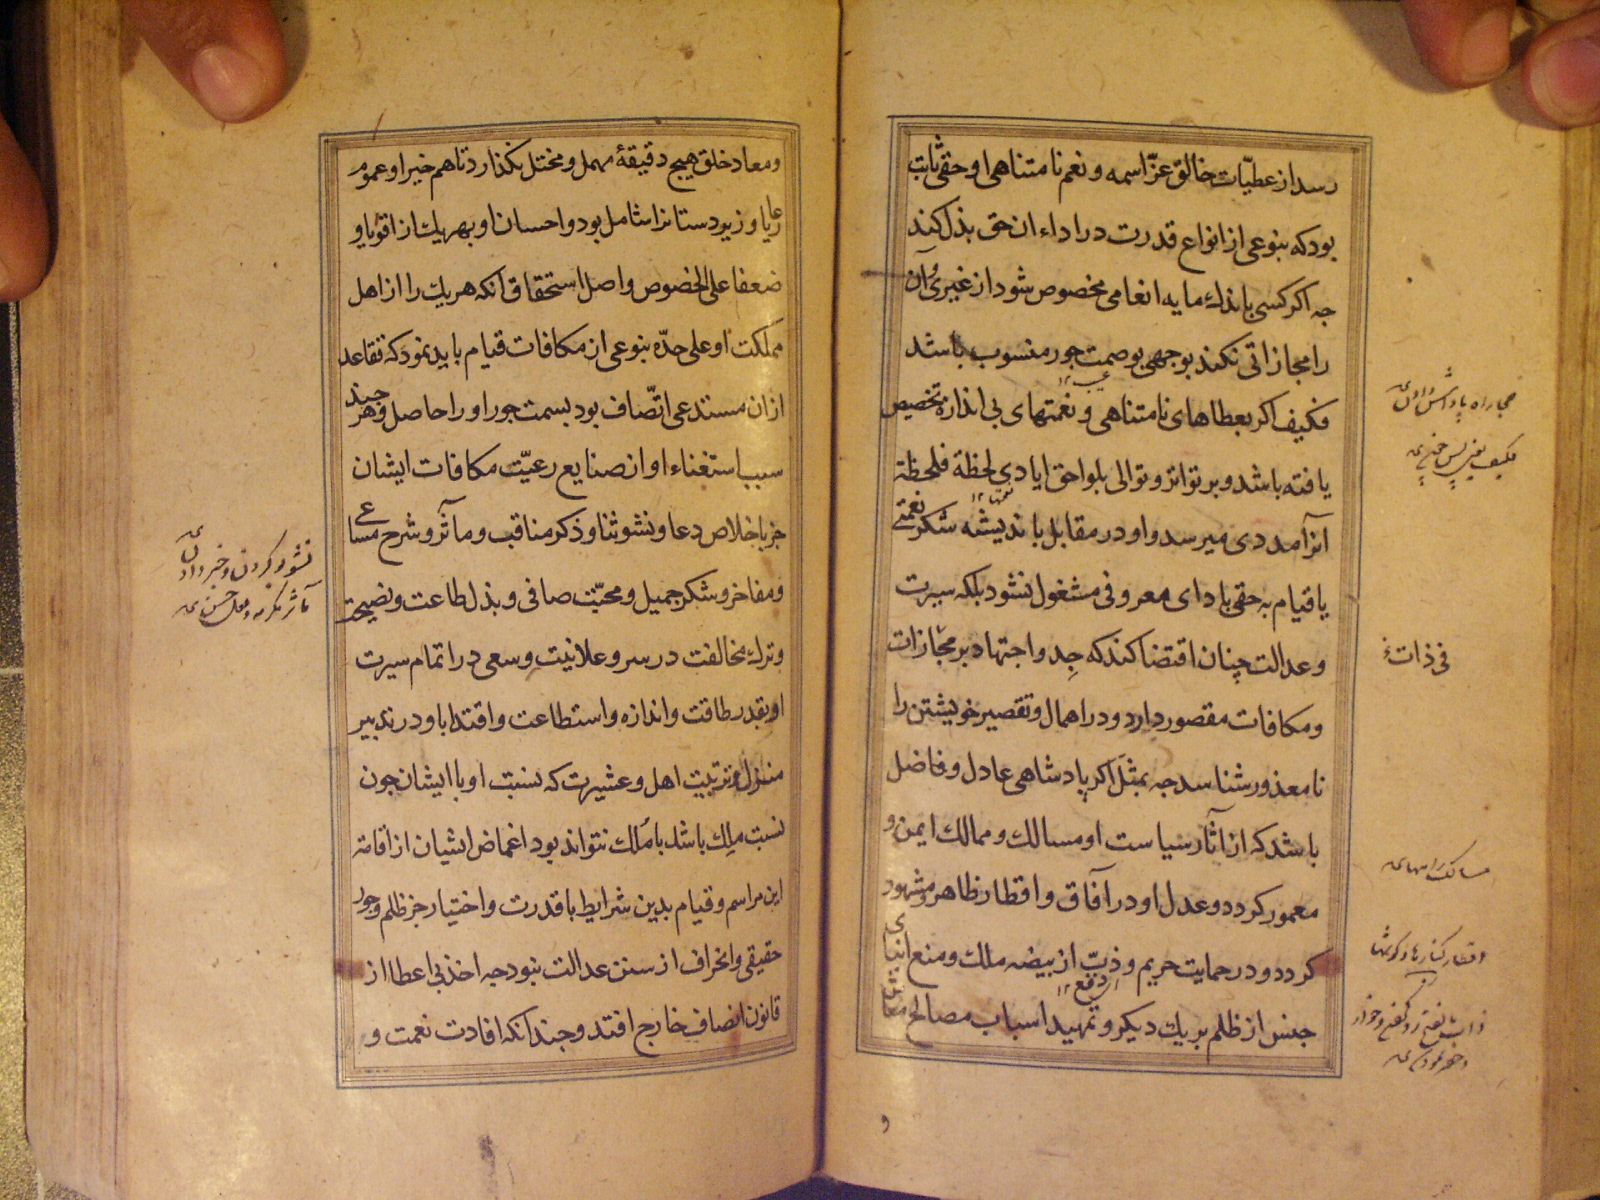 رسد از عطیّات خالق عزّ اسمه و نعم نامتناهی او حقی ثابت
بود که بنوعی از انواع قدرت در اداء ان حق بذل کند
جه اکر کسی باندک مایه انعامی مخصوص شود از غیری و آن
را مجازاتی نکند بوجهی بوصمت جور منسوب باشد
فکیف اکر بعطاهای نامتناهی و نعمتهای بی اندازه تخصیص
یافته باشد و بر تواتر و توالی بلواحق ایادی لحظة فلحظة
انرا مددی میرسد و او در مقابل باندیشه شکر نعمتی
یا قیام به حقی یا دای معروفی مشغول نشود بلکه سیرت
و عدالت چنان اقتضا کند که جِد و اجتهاد بر مجازات
و مکافات مقصور دارد و در اهمال و تقصیر خویشتن را
نامعذور شناسد جه بمثل اکر پادشاهی عادل و فاضل
باشد که از آثار سیاست او مسالک و ممالک ایمن و
معمور کردد و عدل او در آفاق و اقطار ظاهر و مشهود
کردد و در حمایت حریم و ذبّ از بیضه ملک و منع ابنای
جنس از ظلم بر یک دیکر و تمهید اسباب مصالح معاش
مسالک راهها
فی ذات
و معاد خلق هیچ دقیقهٔ مهمل و مختل نکذارد تا هم خیر او عموم
رعایا و زیردستانرا شامل بود و احسان او بهر یک از اقویا و
ضعفا علی الخصوص واصل استحقاق آنکه هر یک را از اهل
مملکت او علی حدّه بنوعی ان مکافات قیام باید نمود که تقاعد
ازان مستدعی اتّصاف بود بسمت جور او را حاصل و هر جند
سبب استغناء او ان صنایع رعیّت مکافات ایشان
جز باخلاص دعا و نشو ثنا و ذکر مناقب و مآثر و شرح مساعی
و مفاخر و شکر جمیل و محبّت صافی و بذل طاعت و نصیحة
و ترک مخالفت در سر و علانیت و سعی در اتمام سیرت
او بقدر طاقت و اندازه و استطاعت و اقتدا باو در تدبیر
منزل و تربیت اهل و عشیرت که نسبت او با ایشان جون
نسبت ملِک باشد با مُلک نتواند بود اغماض ایشان از اقامة
این مراسم و قیام بدین شرایط با قدرت و اختیار جز ظلم و جور
حقیقی و انحراف از سنن عدالت نبود جه اخذ بی اعطا از
قانون انصاف خارج افتد و جندانکه افادت نعمت و